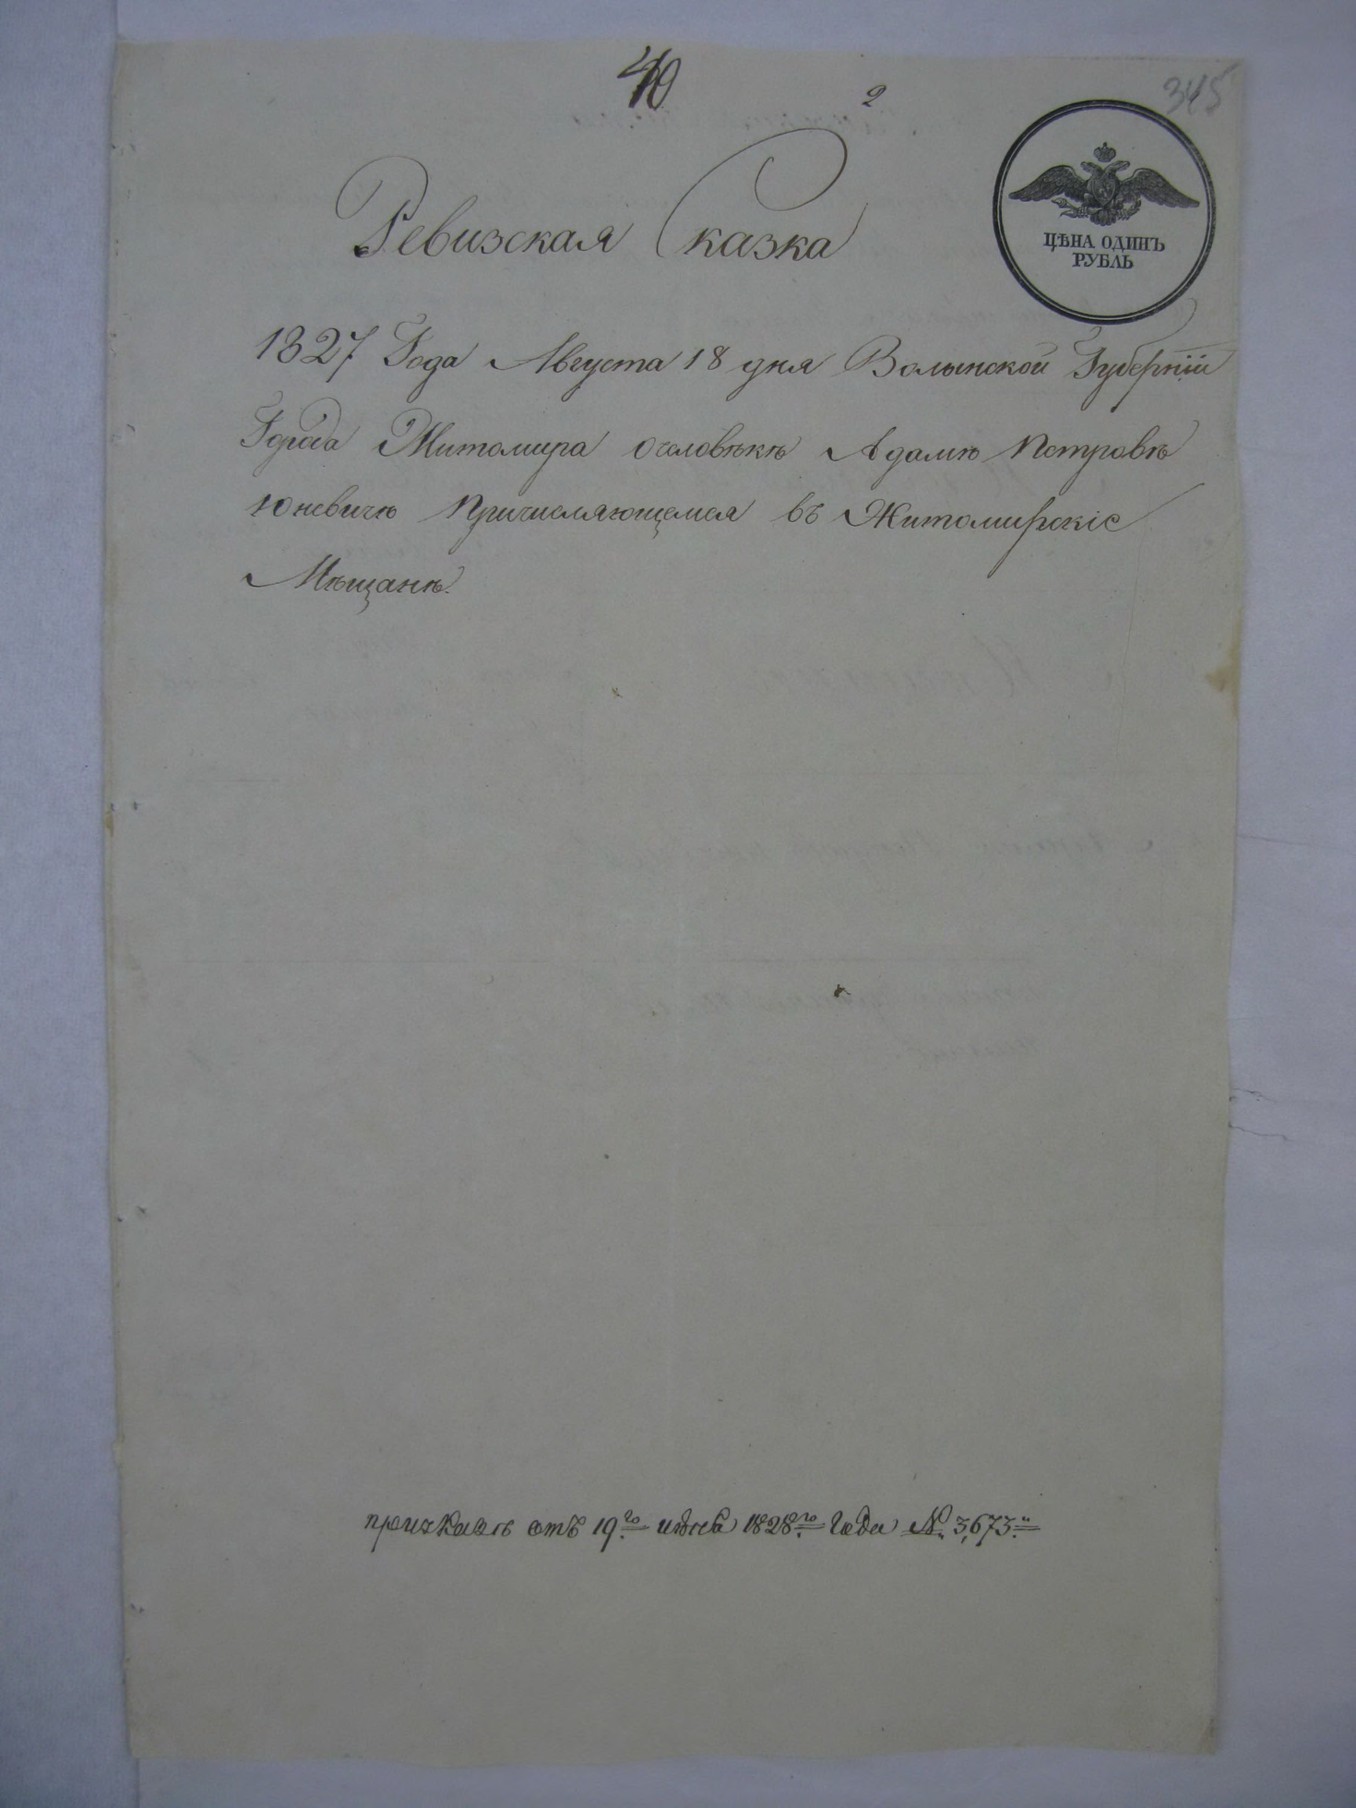 40
2
345
Ревизская Сказка
ЦѢНА ОДИНЪ
РУБЛЬ
1827 Года Августа 18 дня Волынской Губерніи
Города Житомира очеловѣкѣ Адамѣ Петровѣ
Юневичѣ Причисляющемся въ Житомирскіе
Мѣщанѣ.
отъ 19го июня 1828го Года № 3,673.